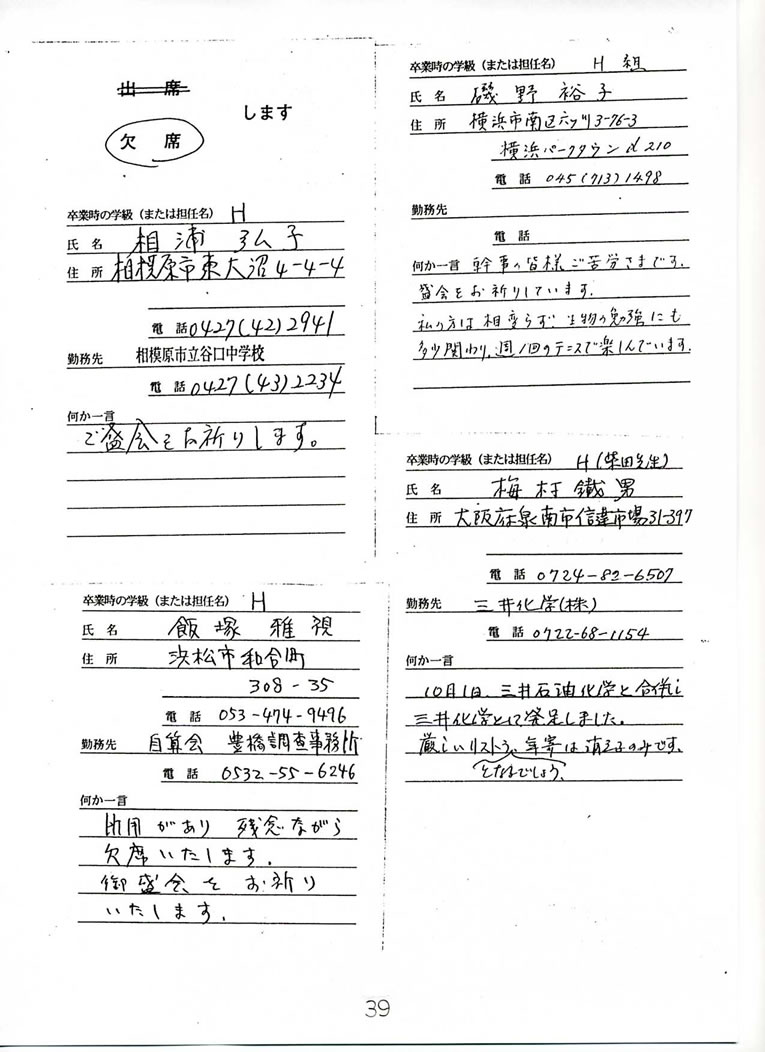 出席
します
欠席
卒業時の学級（または担任名） H
氏名 相浦 弘子
住所 相模原市東大沼4-4-4
電話 0427(42)2941
勤務先 相模原市立谷口中学校
電話 0427(43)2234
何か一言
ご盛会をお祈りします。
卒業時の学級（または担任名） H
氏名 飯塚 雅視
住所 浜松市和合町
308-35
電話 053-474-9496
勤務先 自算会 豊橋調査事務所
電話 0532-55-6246
何か一言
所用があり 残念ながら
欠席いたします.
御盛会をお祈り
いたします.
卒業時の学級（または担任名） H 組
氏名 磯野裕子
住所 横浜市南区六ツ川3-76-3
横浜パークタウン d 210
電話 045(713)1498
勤務先
電話
何か一言 幹事の皆様ご苦労さまです.
盛会をお祈りしています.
私の方は相変らず、生物の勉強にも
多少関わり、週1回のテニスで楽しんでいます.
卒業時の学級（または担任名） H(柴田先生)
氏名 梅村 鐵男
住所 大阪府泉南市信達市場31-397
電話 0724-82-6507
勤務先 三井化学(株)
電話 0722-68-1154
何か一言
10月1日、三井石油化学と合併し
三井化学として発足しました。
厳しいリストラで、年寄は消え去るのみです。
となるでしょう、
39